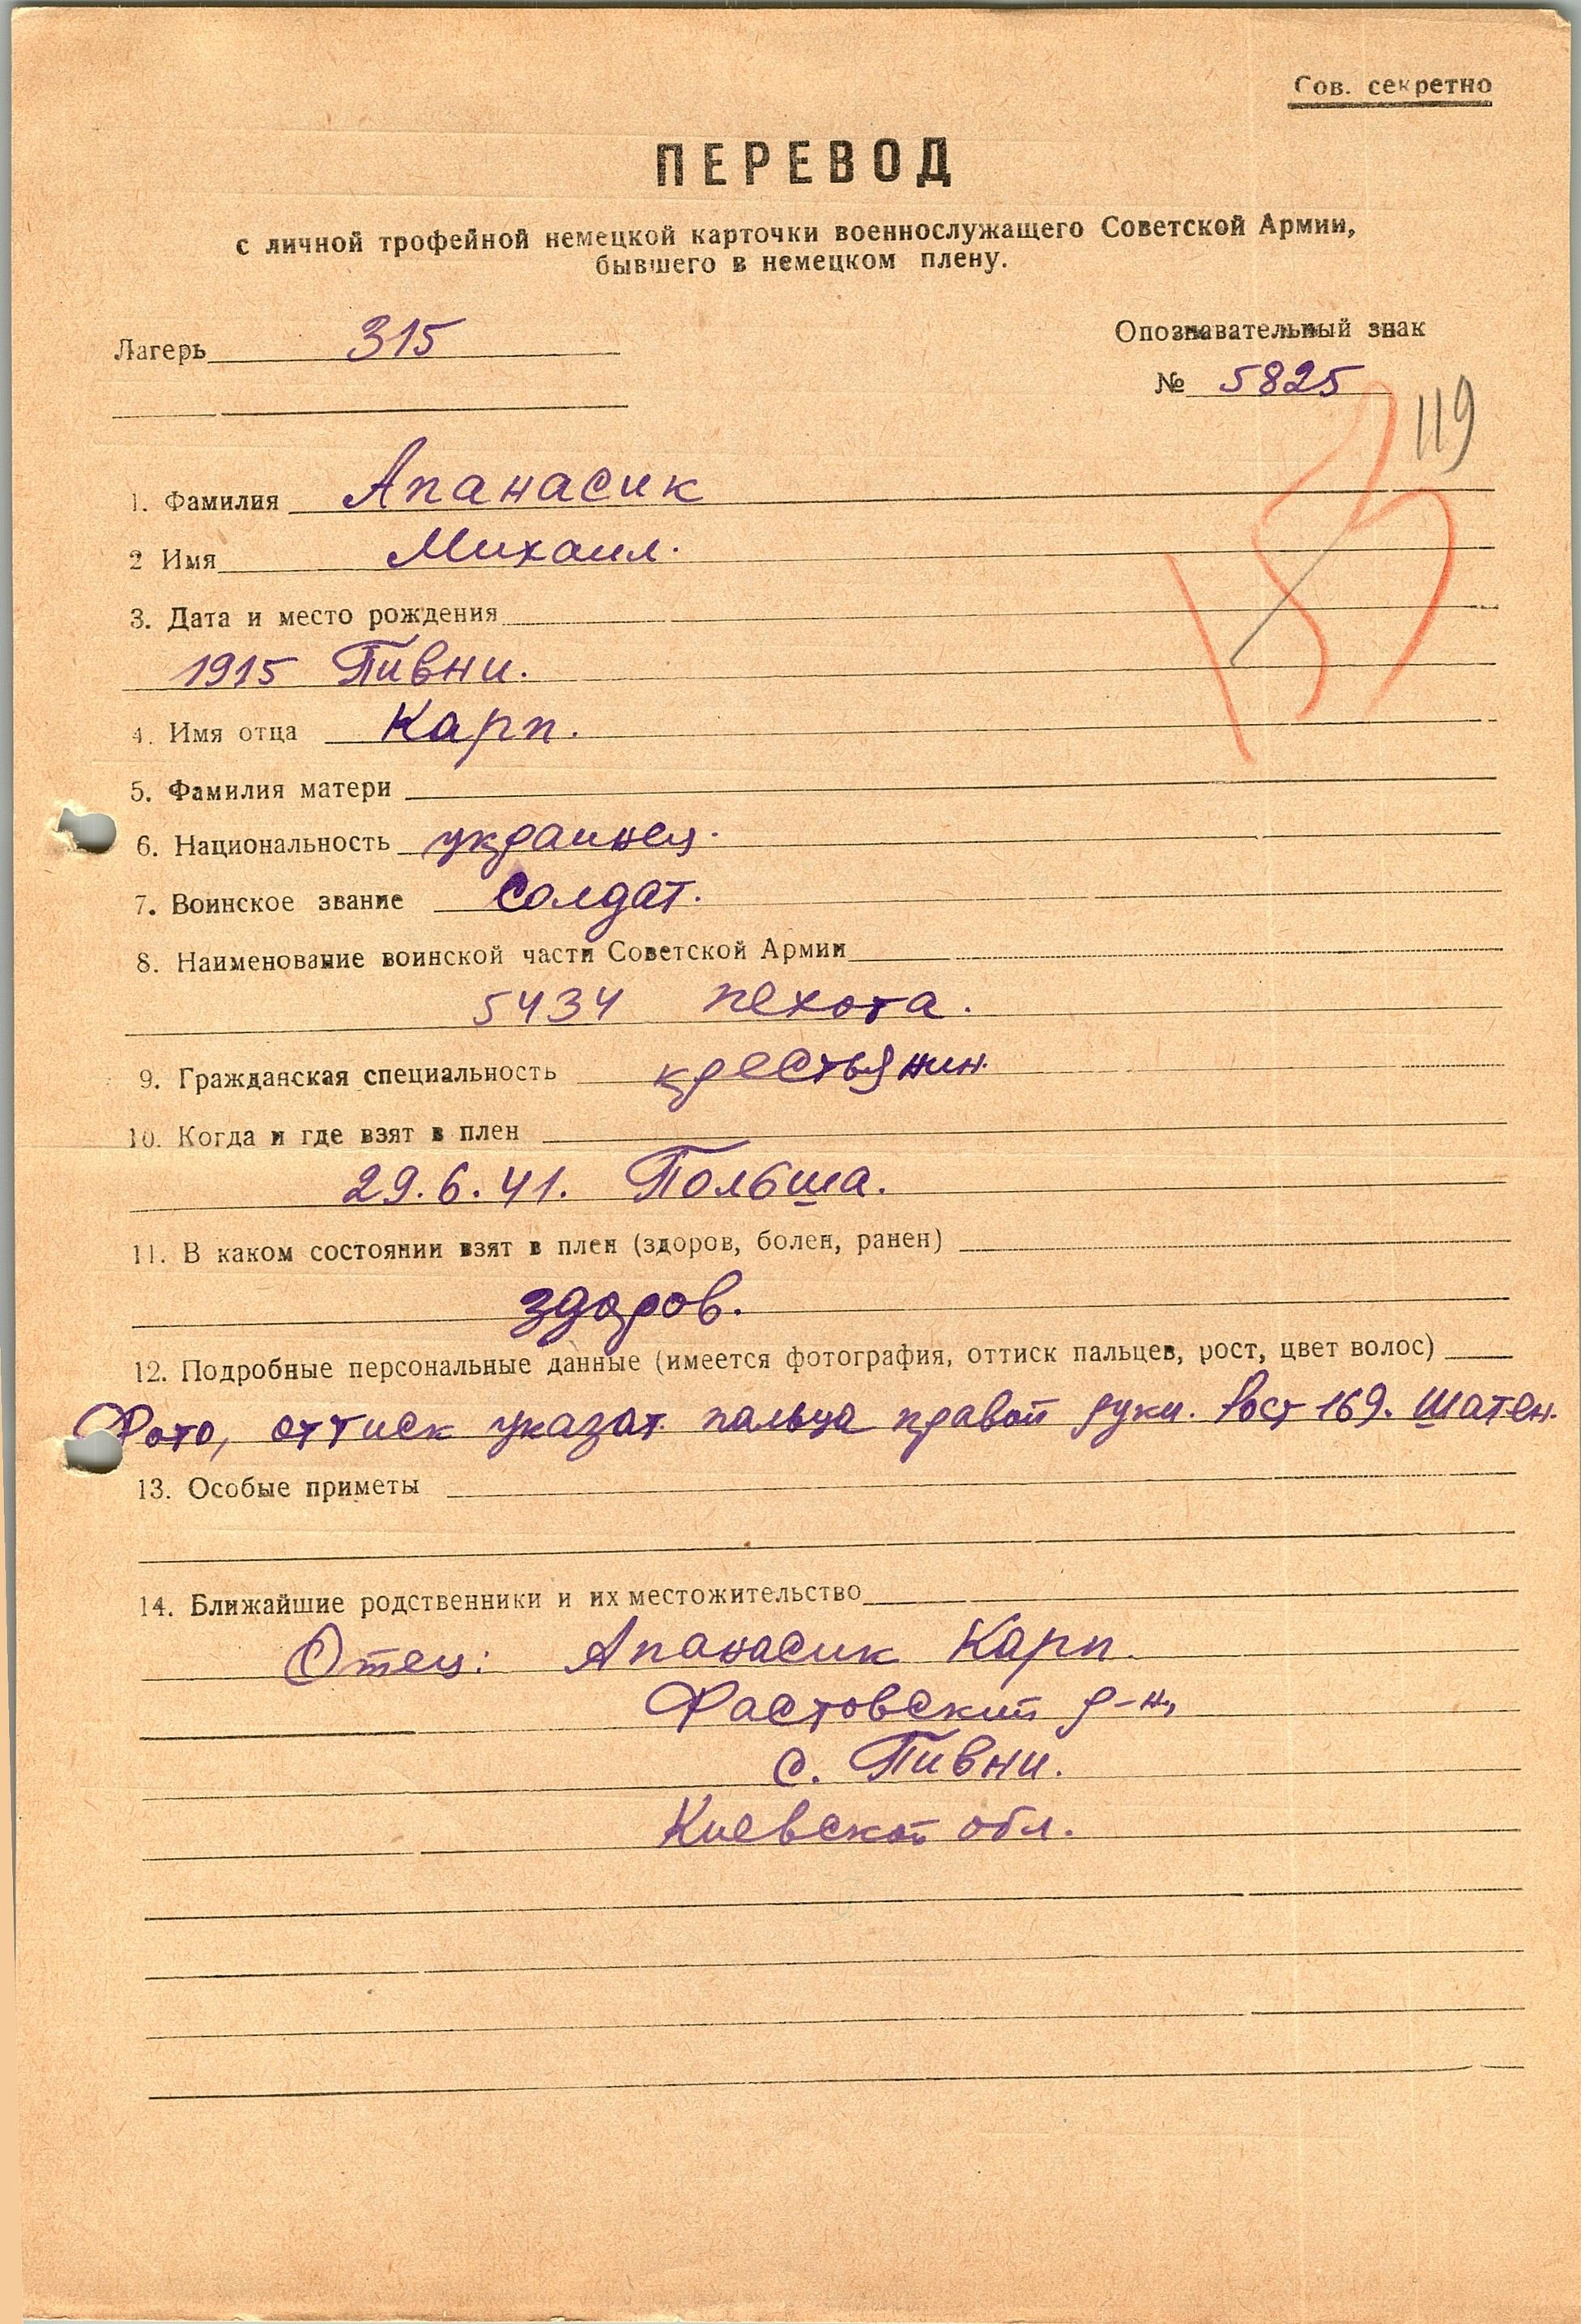 Сов. секретно
ПЕРЕВОД
с личной трофейной немецкой карточки военнослужащего Советской Армии,
бывшего в немецком плену.
Лагерь 315
Опознавательный знак
№ 5825
119
1. Фамилия Апанасик
2 Имя Михаил.
3. Дата и место рождения
1915 Пивни.
4. Имя отца Карп.
5. Фамилия матери
6. Национальность украинец.
7. Воинское звание Солдат.
8. Наименование воинской части Советской Армии
5434 пехота.
9. Гражданская специальность крестьянин.
10. Когда и где взят в плен
29.6.41. Польша.
11. В каком состоянии взят в плен (здоров, болен, ранен)
здоров.
12. Подробные персональные данные (имеется фотография, оттиск пальцев, рост, цвет волос)
Фото, оттиск указат. пальца правой руки. Рост 169. Шатен.
13. Особые приметы
14. Ближайшие родственники и их местожительство
Отец: Апанасик Карп.
Фастовский р-н,
с. Пивни.
Киевской обл.